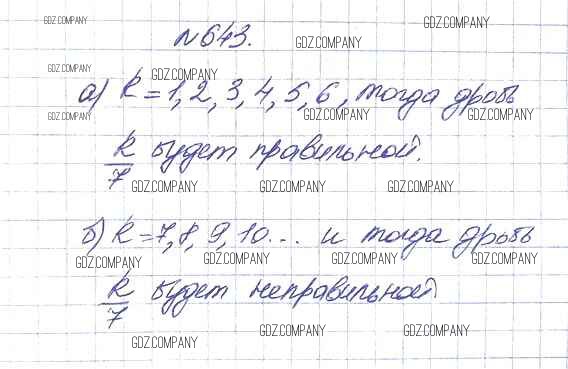 GDZ.COMPANY GDZ.COMPANY
№643. GDZ.COMPANY
GDZ.COMPANY GDZ.COMPANY
а) k = 1, 2, 3, 4, 5, 6, тогда дробь
GDZ.COMPANY GDZ.COMPANY GDZ.COMPANY GDZ.COMPANY
k/7 будет правильной.
GDZ.COMPANY GDZ.COMPANY GDZ.COMPANY
б) k = 7, 8, 9, 10... и тогда дробь
GDZ.COMPANY GDZ.COMPANY GDZ.COMPANY GDZ.COMPANY
k/7 будет неправильной
GDZ.COMPANY GDZ.COMPANY GDZ.COMPANY